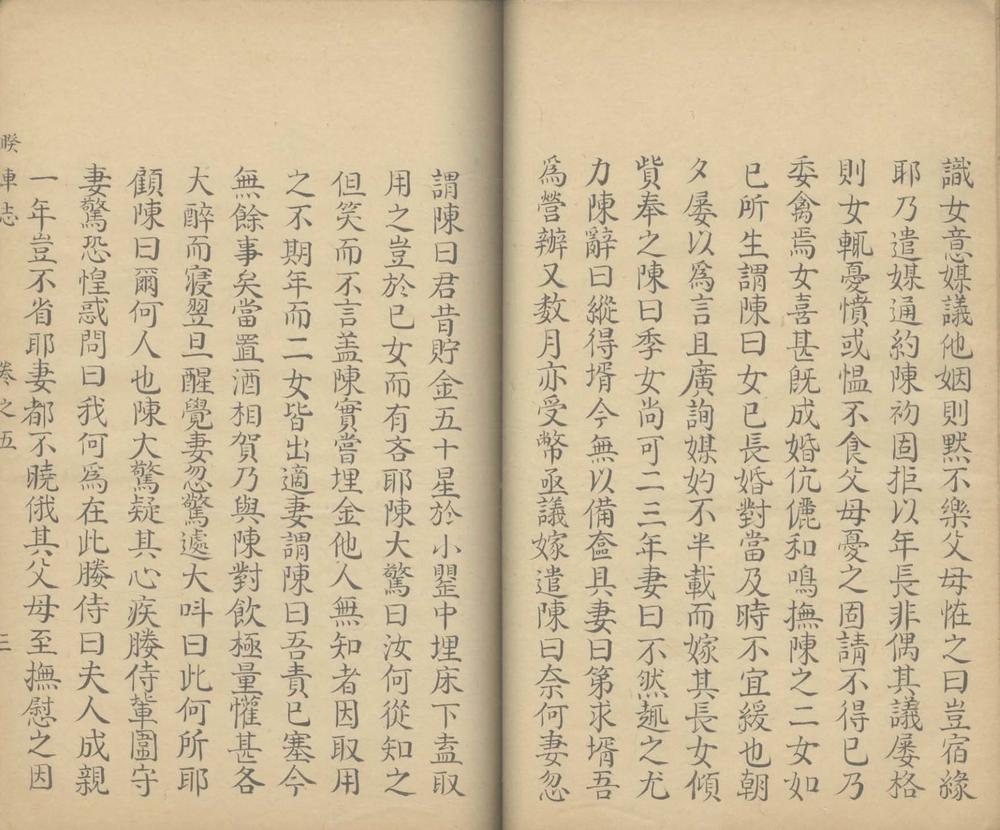 識女意媒議他姻則黙不樂父母恠之曰豈宿緣
耶乃遣媒通約陳初固拒以年長非偶其議屡格
則女輒憂憤或愠不食父母憂之固請不得已乃
委禽焉女喜甚旣成婚伉儷和鳴撫陳之二女如
已所生謂陳曰女已長婚對當及時不宜緩也朝
夕屡以爲言且廣詢媒妁不半載而嫁其長女傾
貲奉之陳曰季女尚可二三年妻曰不然趣之尤
力陳辭曰縱得壻今無以備奩具妻曰第求壻吾
爲營辦又数月亦受幣亟議嫁遣陳曰奈何妻忽
謂陳曰君昔貯金五十星於小罌中埋床下盍取
用之豈於已女而有吝耶陳大驚曰汝何從知之
但笑而不言盖陳實嘗埋金他人無知者因取用
之不期年而二女皆出適妻謂陳曰吾責已塞今
無餘事矣當置酒相賀乃與陳對飲極量懽甚各
大醉而寝翌旦醒覺妻忽驚遽大呌曰此何所耶
顧陳曰爾何人也陳大驚疑其心疾媵侍輩圍守
妻驚恐惶惑問曰我何爲在此媵侍曰夫人成親
一年豈不省耶妻都不曉俄其父母至撫慰之因
睽車志 卷之五 三